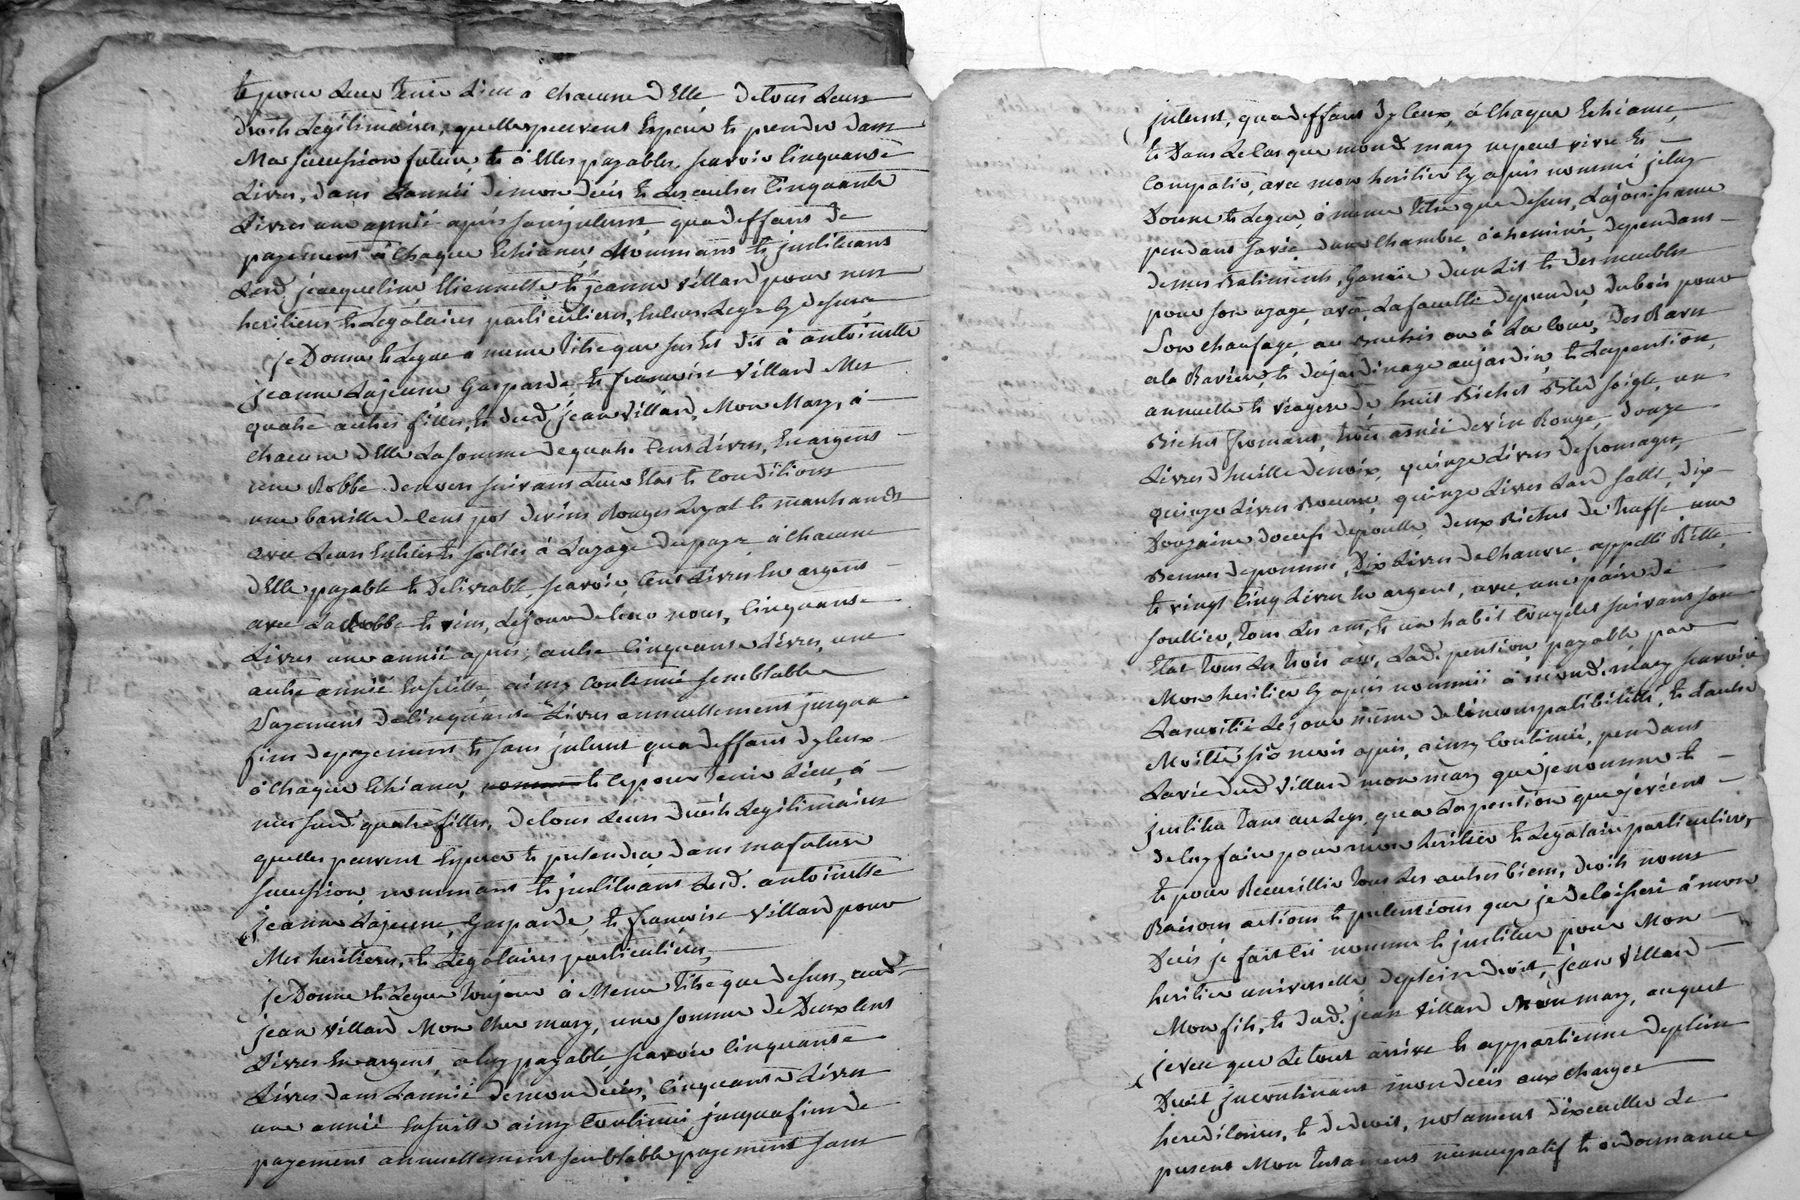 Et pour leur tenir Lieu a chacune d'Elle, de tous Leurs
droits Legitimaires, quelles peuvent Esperer Et prendre dans
Ma succession future, Et a Elles payables, scavoir Cinquante
Livres, dans Lannée de mon deces Et Les autres Cinquante
Livres une année apres sans jnterest, qua deffaut de
payement a Chaque Echéance, Nommant Et jnstituant
Lesd. jacqueline, Etiennette Et jeanne Villard pour mes
heritieres Et Legataires particulieres, En leurs Legs Cy dessus,
je Donne Et Legue a meme Titre que sus Est dit a antoinette
jeanne Lajeune Gasparde, Et françoise Villard Mes
quatre autres filles, Et dud. jean Villard, Mon Mary, a
chacune d'Elle La somme de quatre Cens Livres, En argent
une Robbe de nien suivant Leur Etat Et Conditions
une barille de Cent pot de vins Rouges Loyal Et marchands
avec Leurs habits a Lusage du pays a chacune
d'Elle payable Et Delivrable scavoir, Cent Livres En argent
avec La Robbe Et vins, Le jour de leur nous, Cinquante
Livres une année apres, autre Cinquante Livres, une
autre année Ensuitte ainsy Continué semblable
Payement de Cinquante Livres annuellement jusqua
fins de payement Et sans jnterest qua deffaut dyceux
a Chaque Echéance, Et ce pour tenir Lieu, a
mes susd. quatre filles, de tous Leurs droits Legitimaires
quelles peuvent Esperer Et pretendre dans ma future
succession, nommant Et jnstituant Lesd. antoinette
jeanne Lajeune, Gasparde, Et françoise Villard pour
Mes heritieres, Et Legataires particulieres,
je Donne Et Legue Toujour a Meme Titre que dessus, aud.
jean Villard Mon Cher mary, une somme de Deux Cent
Livres En argent, a luy payable, scavoir Cinquante
Livres dans Lannée de mon deces, Cinquante Livres
une année Ensuitte ainsy Continué jusqua fin de
payement annuellement semblable payement sans
jnterest, qua deffaut dyceux, a Chaque Echéance,
Et Dans Le Cas que mond. mary ne peut vivre Et
Compatir, avec mon heritier Cy apres nommé je luy
Donne Et Legue, a meme Titre que dessus, La jouissance
pendant sa vie, d'une Chambre, a cheminée, dependant
de mes Batiments, Garnie d'un Lit Et des meubles
pour son usage, avec La faculté de prendre, du bois pour
Son Chaufage, au Buchis ou a La Cour, Des Raves
a la Raviere, Et du jardinage au jardin, Et La pention,
annuelle Et Viagere de huit Bichet Bled seigle, un
Bichet froment, trois asnée de vin Rouge, douze
Livres d'huille de noix, quinze Livres de fromages,
quinze Livres Beurre, quinze Livres Lard sallé, dix
Douzaine d'oeufs de poulle, deux Bichet de Truffe une
Bennes de pommes, Dix Livres de chanvre appellé Ritte,
Et vingt Cinq Livres En argent, avec, une paire de
soulliers, Tous Les ans, Et un habit Complet suivant son
Etat Tous Les trois ans, Lad. pention, payable par
Mon heritier Cy apres nommé a mond. mary scavoir
La moitié Le jour meme de l'incompatibilitté, Et L'autre
Moitié six mois apres, ainsy Continué, pendant
La vie dud. Villard mon mary que je nomme Et
jnstitue Tant au Legs, qua La pention que je viens
de luy faire pour mon heritier Et Legataire particulier,
Et pour Recueillir Tous Les autres biens, droits noms
Raisons actions Et pretentions que je delaisserai a mon
Deces je fait Et nomme Et jnstitue pour Mon
heritier universelle, de plein droit, jean Villard
Mon fils, Et dud. jean Villard Mon mary, auquel
je veu que Le tout arrive Et appartienne de plein
Droit jncontinant mon deces aux charges
hereditaires, Et de droit, notament d'Executter Le
present Mon Testament nuncupatif Et ordonnance